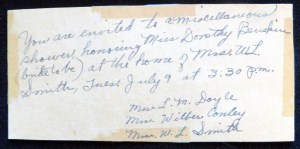 You are envited to a miscellaneous
shower, honoring Miss Dorothy
(bride to be) at the home of W.L.
Smith, Tues July 9 at 3:30 p.m.
Mrs L. M. Doyle
Mrs Wilber Conley
Mrs. W. L Smith